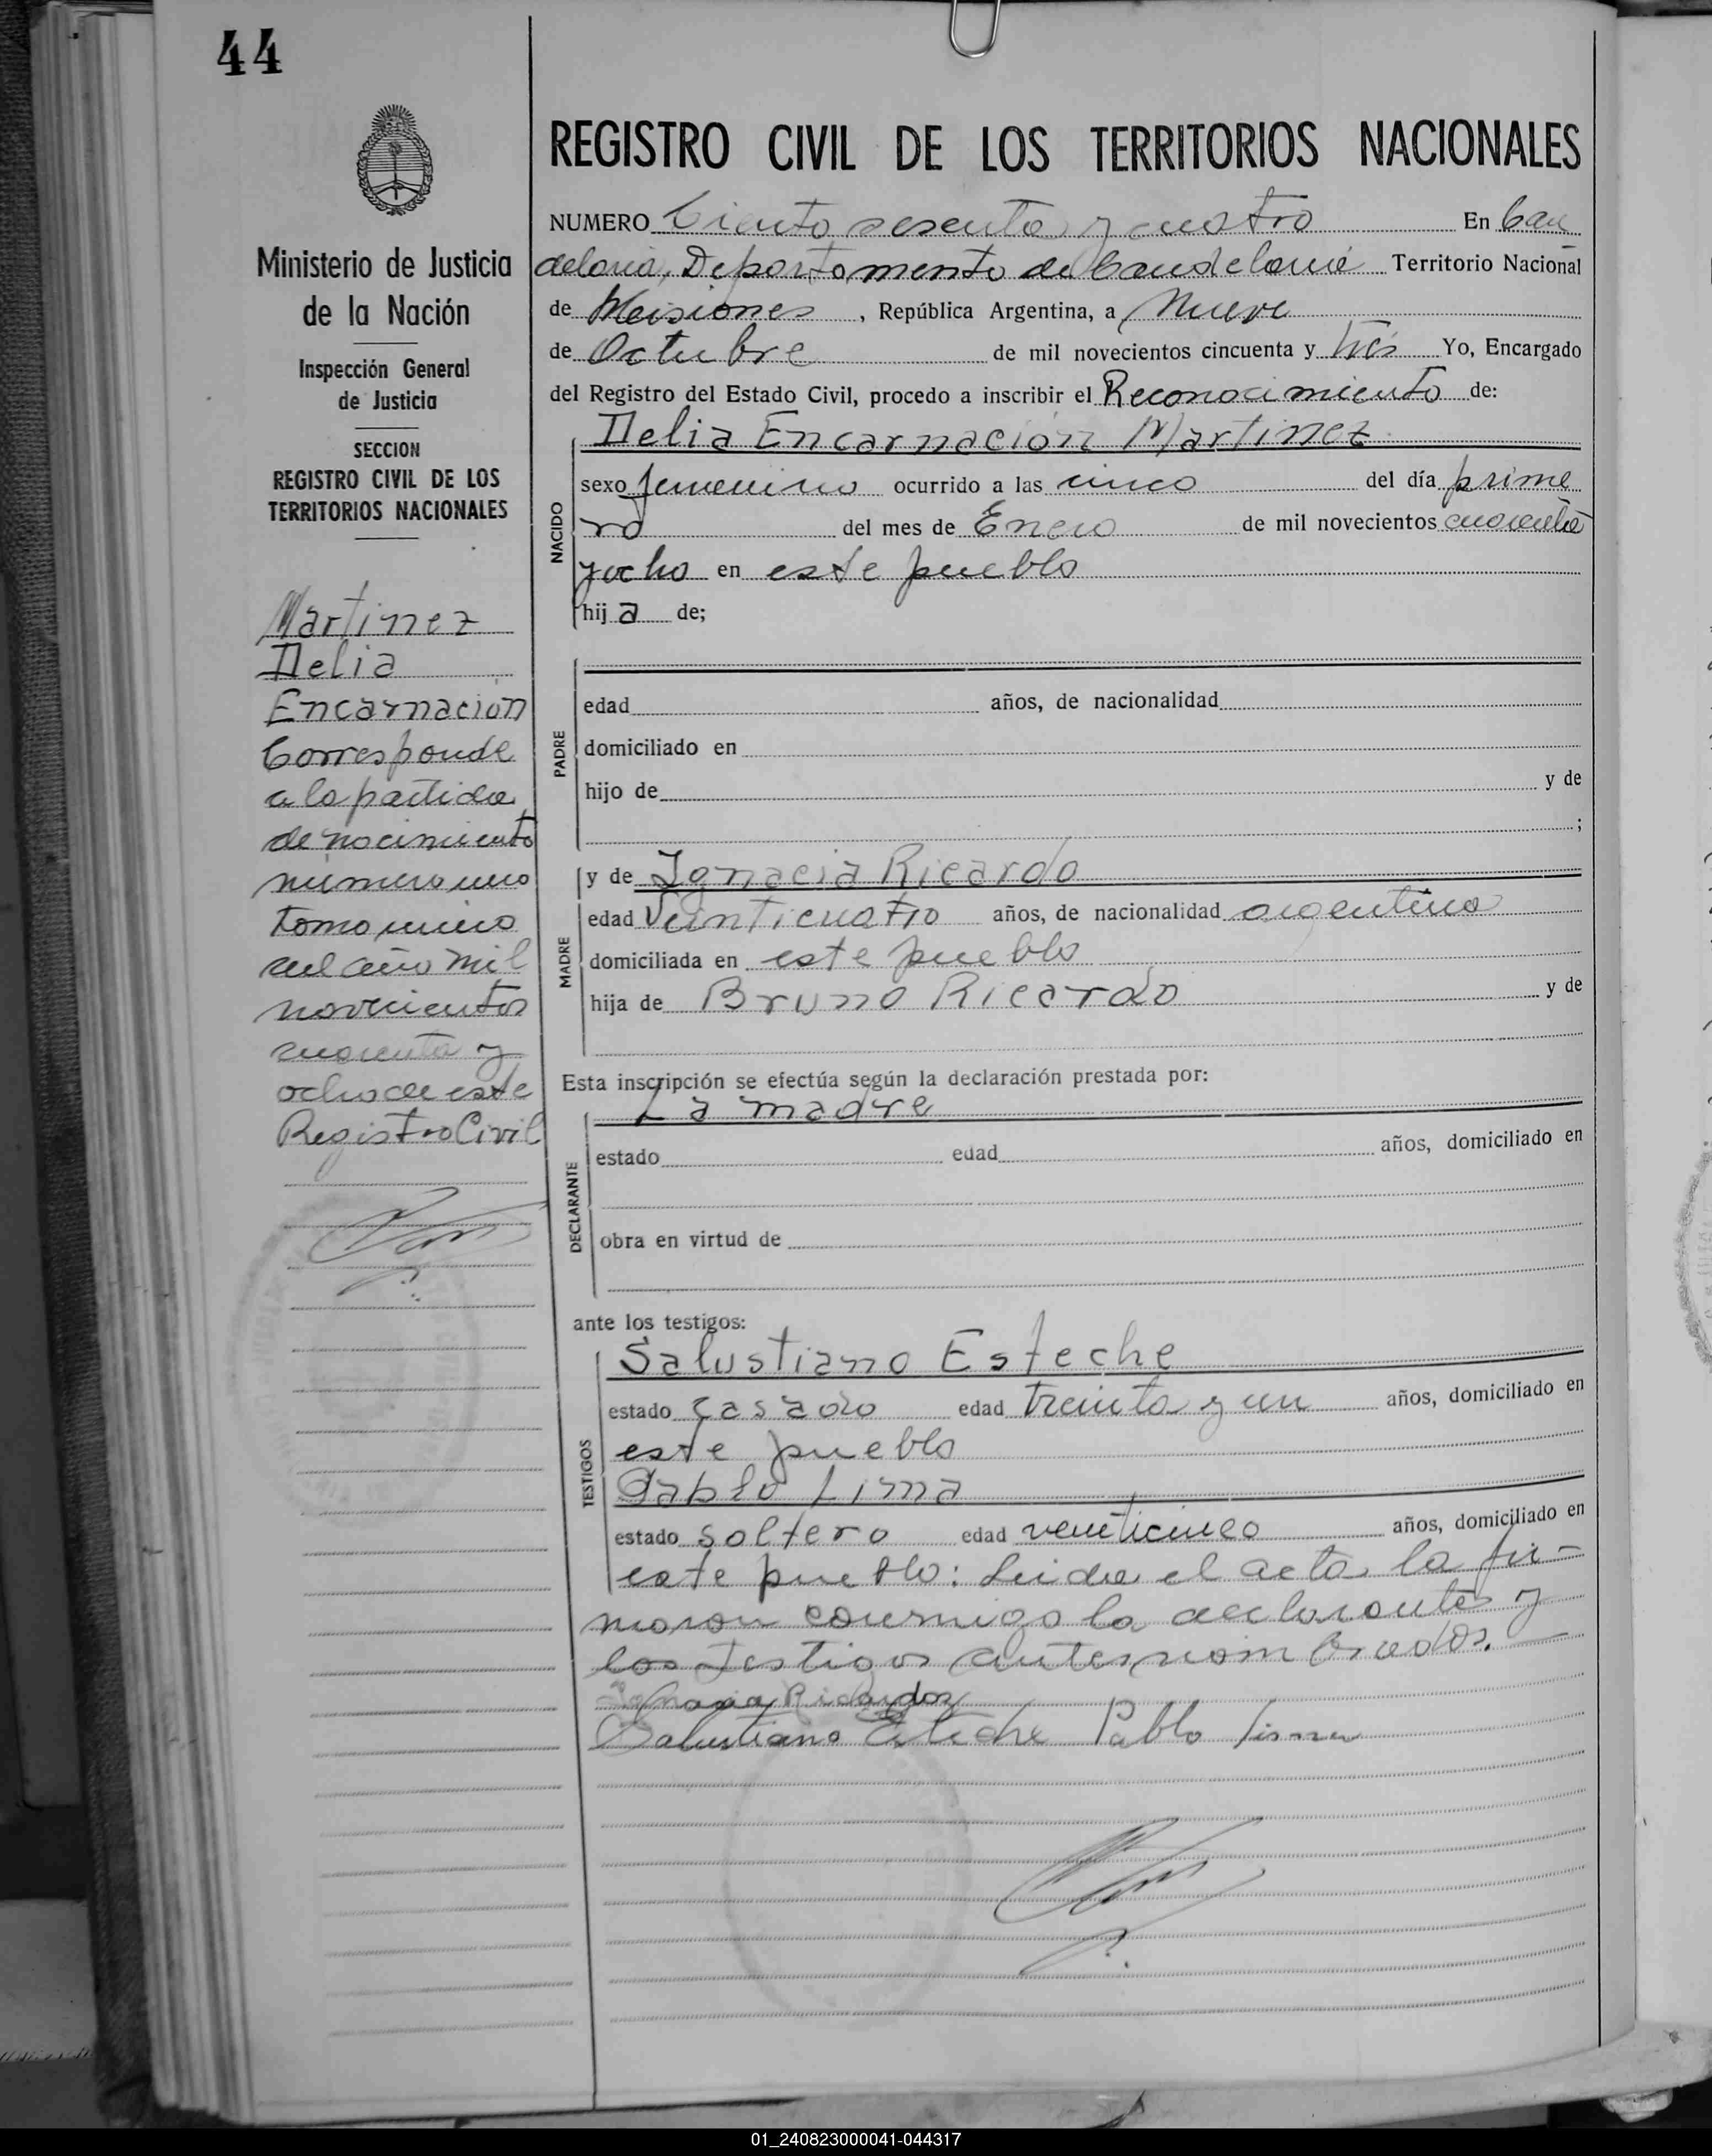 44
Ministerio de Justicia
de la Nación
Inspección General
de Justicia
SECCION
REGISTRO CIVIL DE LOS
TERRITORIOS NACIONALES
Martinez
Delia
Encarnación
Corresponde
a la partida
de nacimiento
número uno
tomo unico
del año mil
novecientos
cuarenta y
ocho de este
Registro Civil
REGISTRO CIVIL DE LOS TERRITORIOS NACIONALES
NUMERO Ciento sesenta y cuatro En Can
delaria, Departamento de Candelaria Territorio Nacional
de Misiones, República Argentina, a Nueve
de Octubre de mil novecientos cincuenta y tres Yo, Encargado
del Registro del Estado Civil, procedo a inscribir el Reconocimiento de:
Delia Encarnación Martinez
NACIDO
sexo femenino ocurrido a las cinco del día prime
ro del mes de Enero de mil novecientos cuarenta
y ocho en este pueblo
hija de;
PADRE
edad años, de nacionalidad
domiciliado en
hijo de y de
;
y de Ignacia Ricardo
MADRE
edad Veinticuatro años, de nacionalidad argentina
domiciliada en este pueblo
hija de Bruno Ricardo y de
Esta inscripción se efectúa según la declaración prestada por:
La madre
DECLARANTE
estado edad años, domiciliado en
obra en virtud de
ante los testigos:
Salustiano Esteche
TESTIGOS
estado casado edad treinta y un años, domiciliado en
este pueblo
Pablo Lima
estado soltero edad veinticinco años, domiciliado en
este pueblo: Leida el acta la fir-
maron conmigo la declarante y
los testigos antes nombrados.
Salustiano Esteche Pablo Lima
01_240823000041-044317